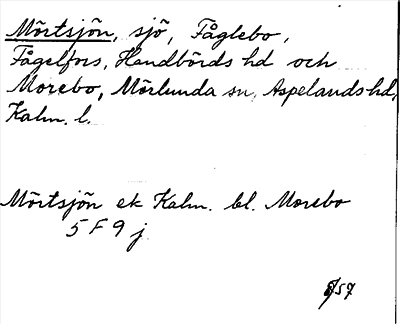 Mörtsjön, sjö, Fåglebo,
Fågelfors, Handbörds hd och
Morebo, Mörlunda sn, Aspelands hd,
Kalm. l.
Mörtsjön ek Kalm. bl. Morebo
5 F 9 j